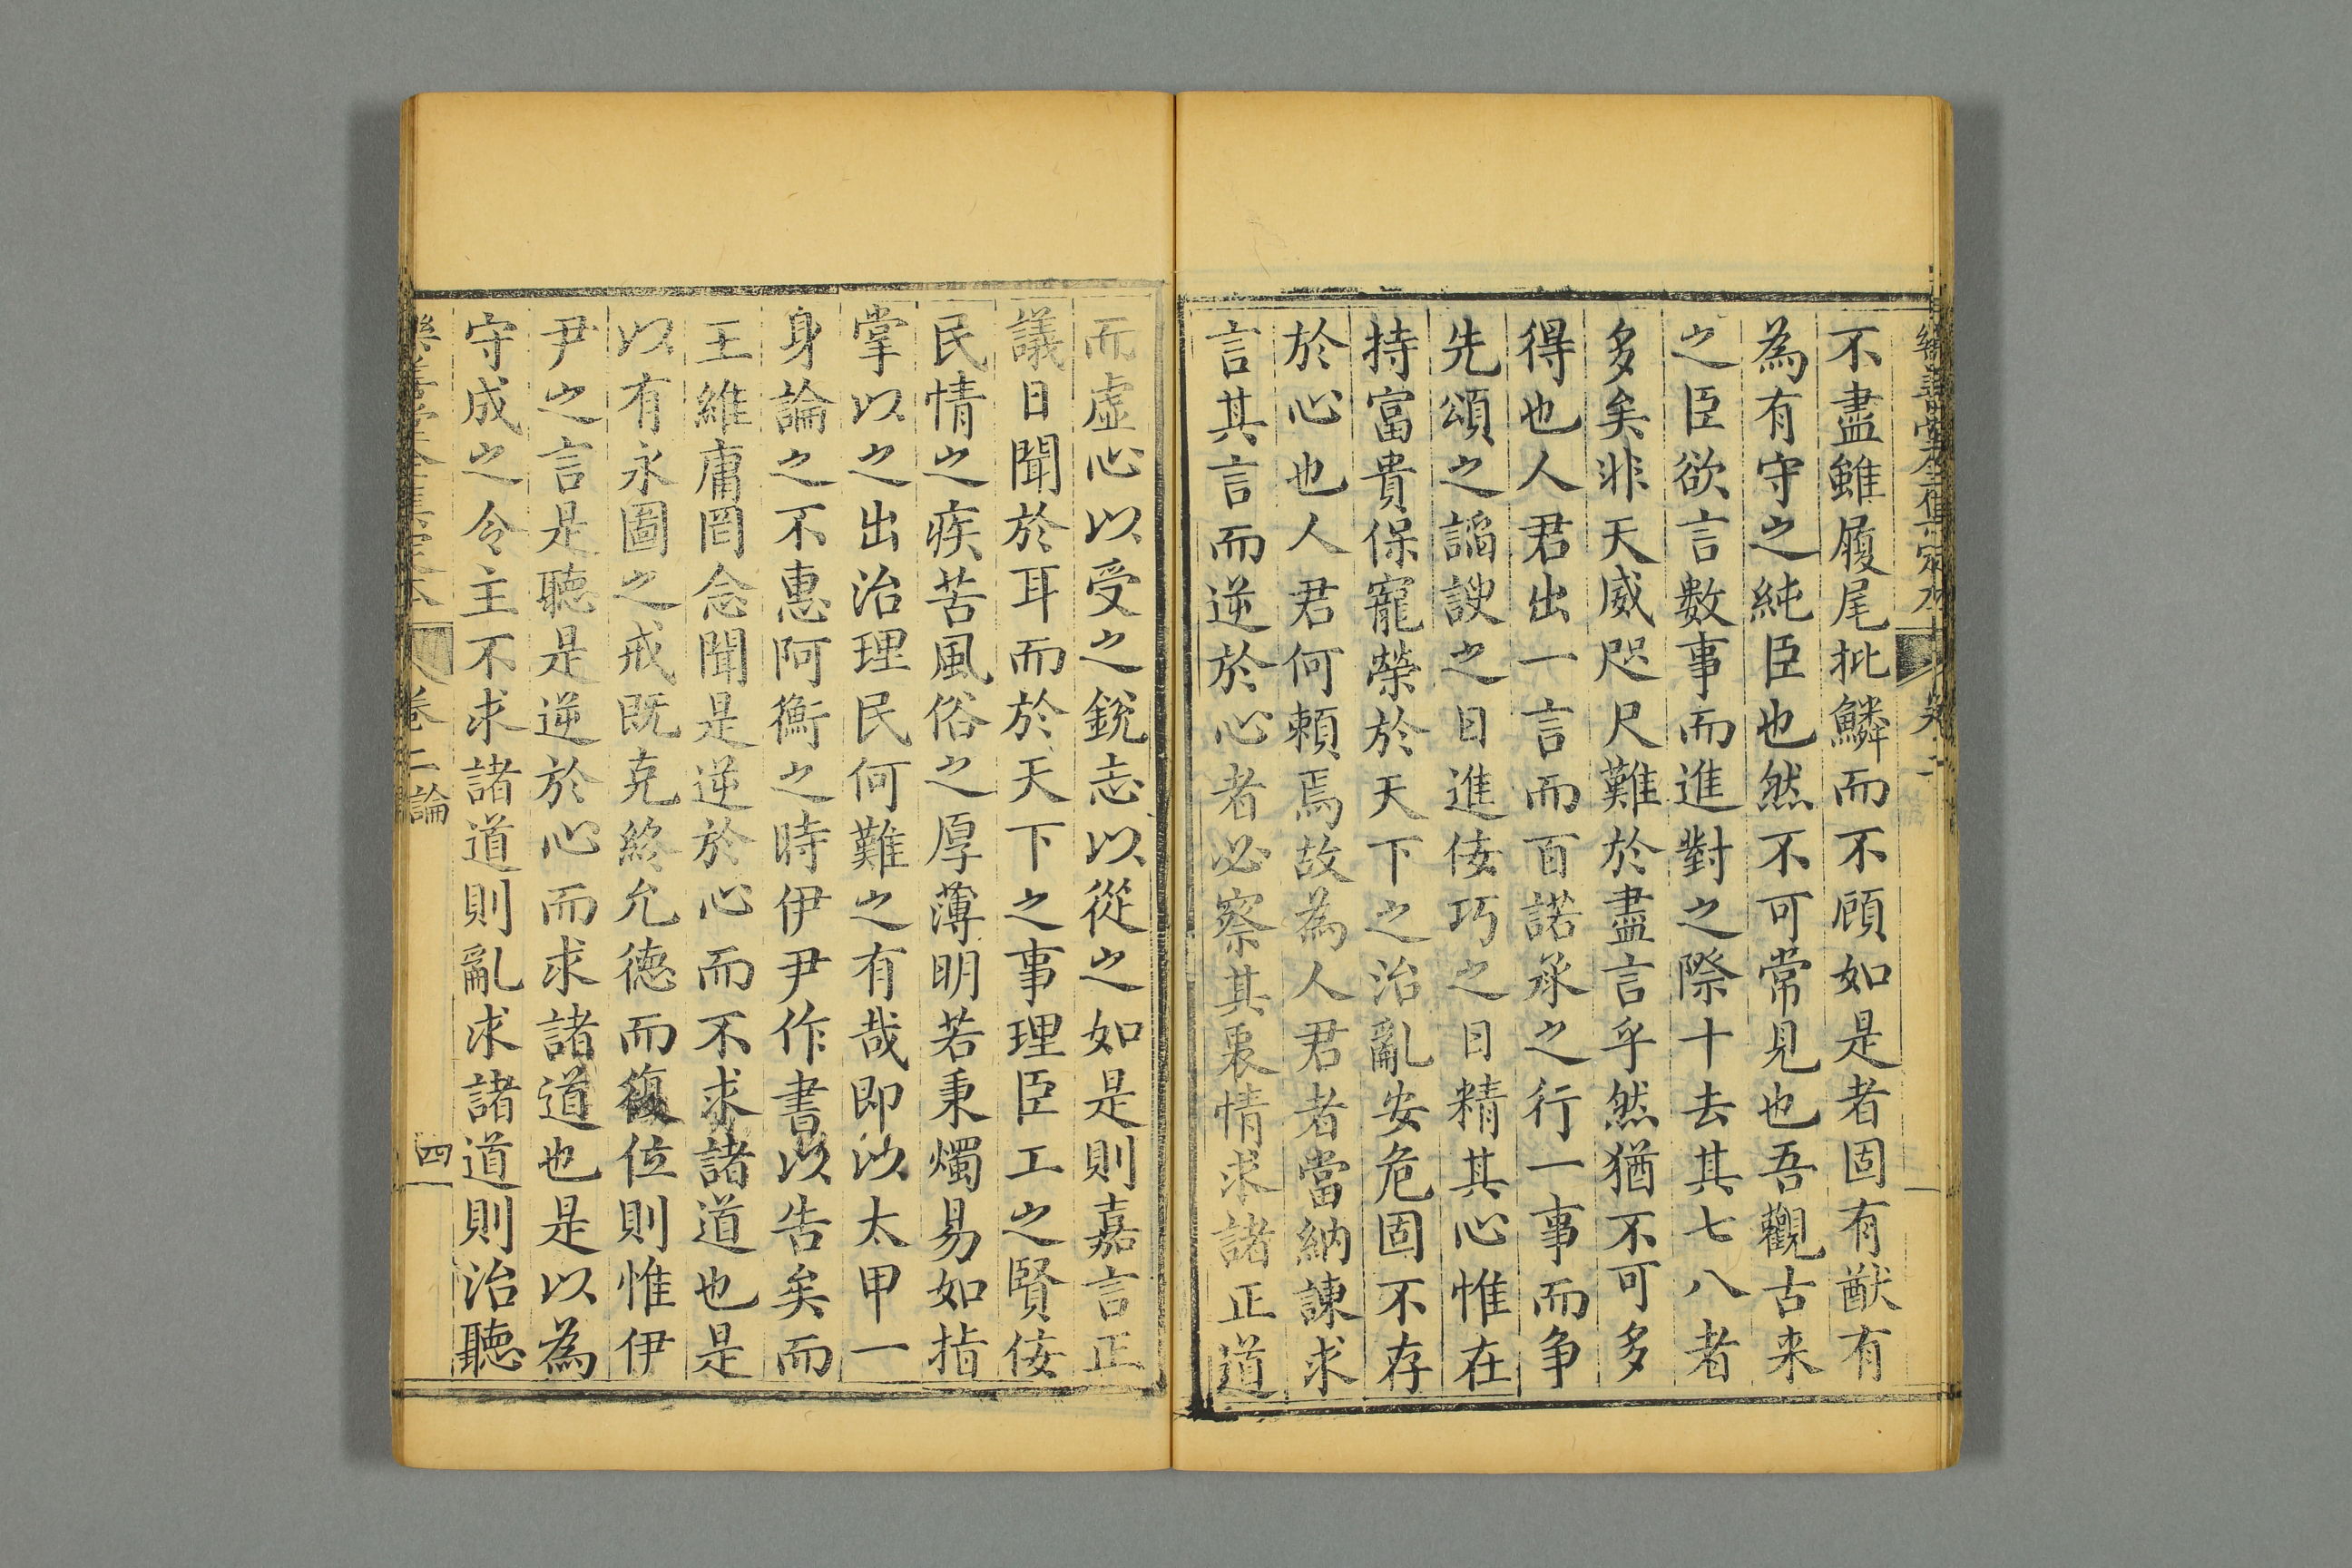 樂善堂全集定本 卷二
不盡雖履尾批鱗而不顧如是者固有猷有
為有守之純臣也然不可常見也吾觀古来
之臣欲言數事而進對之際十去其七八者
多矣非天威咫尺難於盡言乎然猶不可多
得也人君出一言而百諾承之行一事而争
先頌之謟諛之日進佞巧之日精其心惟在
持富貴保寵榮於天下之治亂安危固不存
於心也人君何賴焉故為人君者當納諫求
言其言而逆於心者必察其裏情求諸正道
而虚心以受之銳志以從之如是則嘉言正
議日聞於耳而於天下之事理臣工之賢佞
民情之疾苦風俗之厚薄明若秉燭易如指
掌以之出治理民何難之有哉即以太甲一
身論之不惠阿衡之時伊尹作書以告矣而
王維庸罔念聞是逆於心而不求諸道也是
以有永圖之戒既克終允德而復位則惟伊
尹之言是聽是逆於心而求諸道也是以為
守成之令主不求諸道則亂求諸道則治聽
樂善堂全集定本 卷二論 四